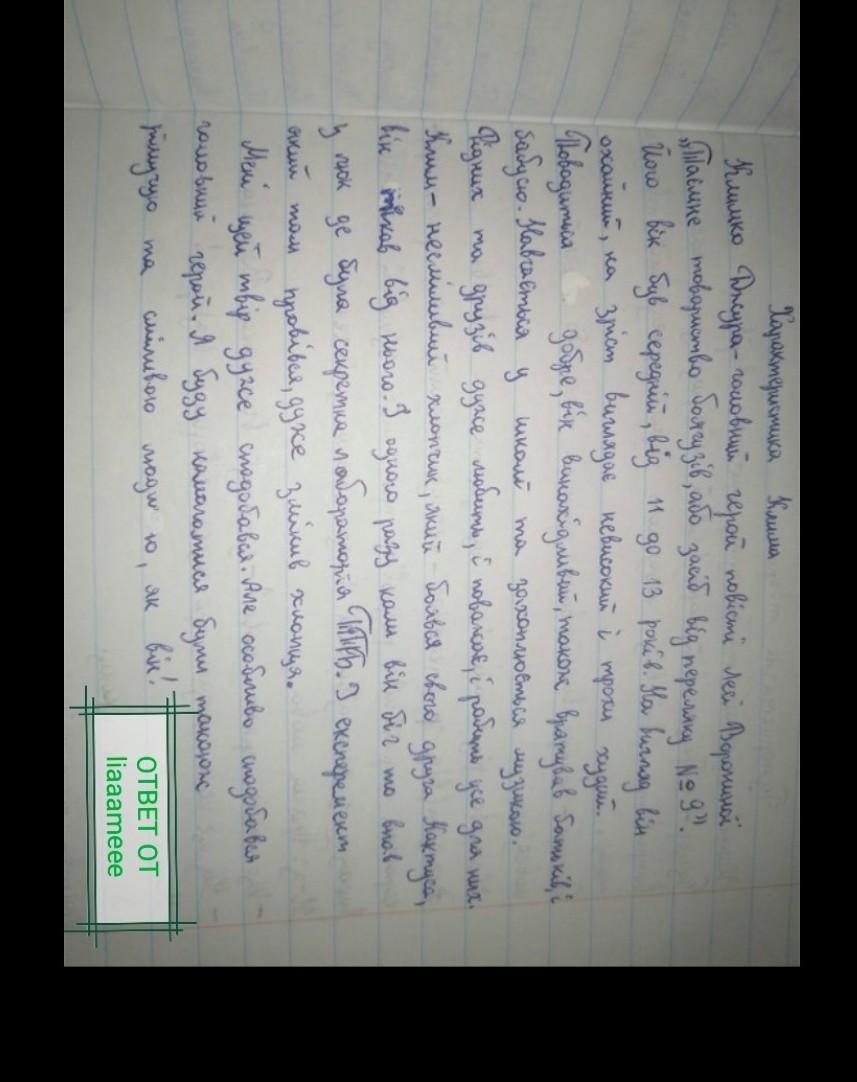 Характеристика Клима
Климко Джура - головний герой повісті Лесі Ворониної
„Таємне товариство боягузів, або засіб від переляку №9".
Його вік був середній, від 11 до 13 років. На вигляд він
охайний, на зріст виглядає невисокий і трохи худий.
Поводиться добре, він винахідливий, також врятував батьків, і
бабусю. Навчається у школі та захоплюється музикою.
Рідних та друзів дуже любить, і поважає, і робить усе для них.
Клим - несміливий хлопчик, який боявся свого друга Кактуса,
він тікав від нього. І одного разу коли він біг то впав
у люк де була секретна лабораторія ТТБ. І експеремент
який там провівся, дуже змінив хлопця.
Мені цей твір дуже сподобався. Але особливо сподобався
головний герой. Я буду намагатися бути такою ж
рішучою та сміливою людиною, як він!
ОТВЕТ ОТ
liaaameee